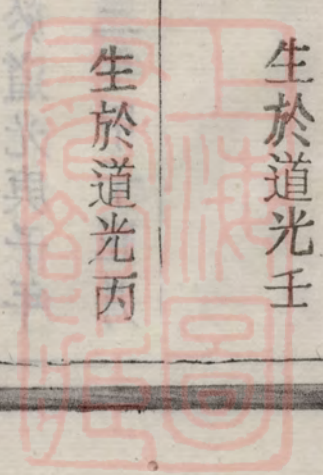 生於道光壬
生於道光丙